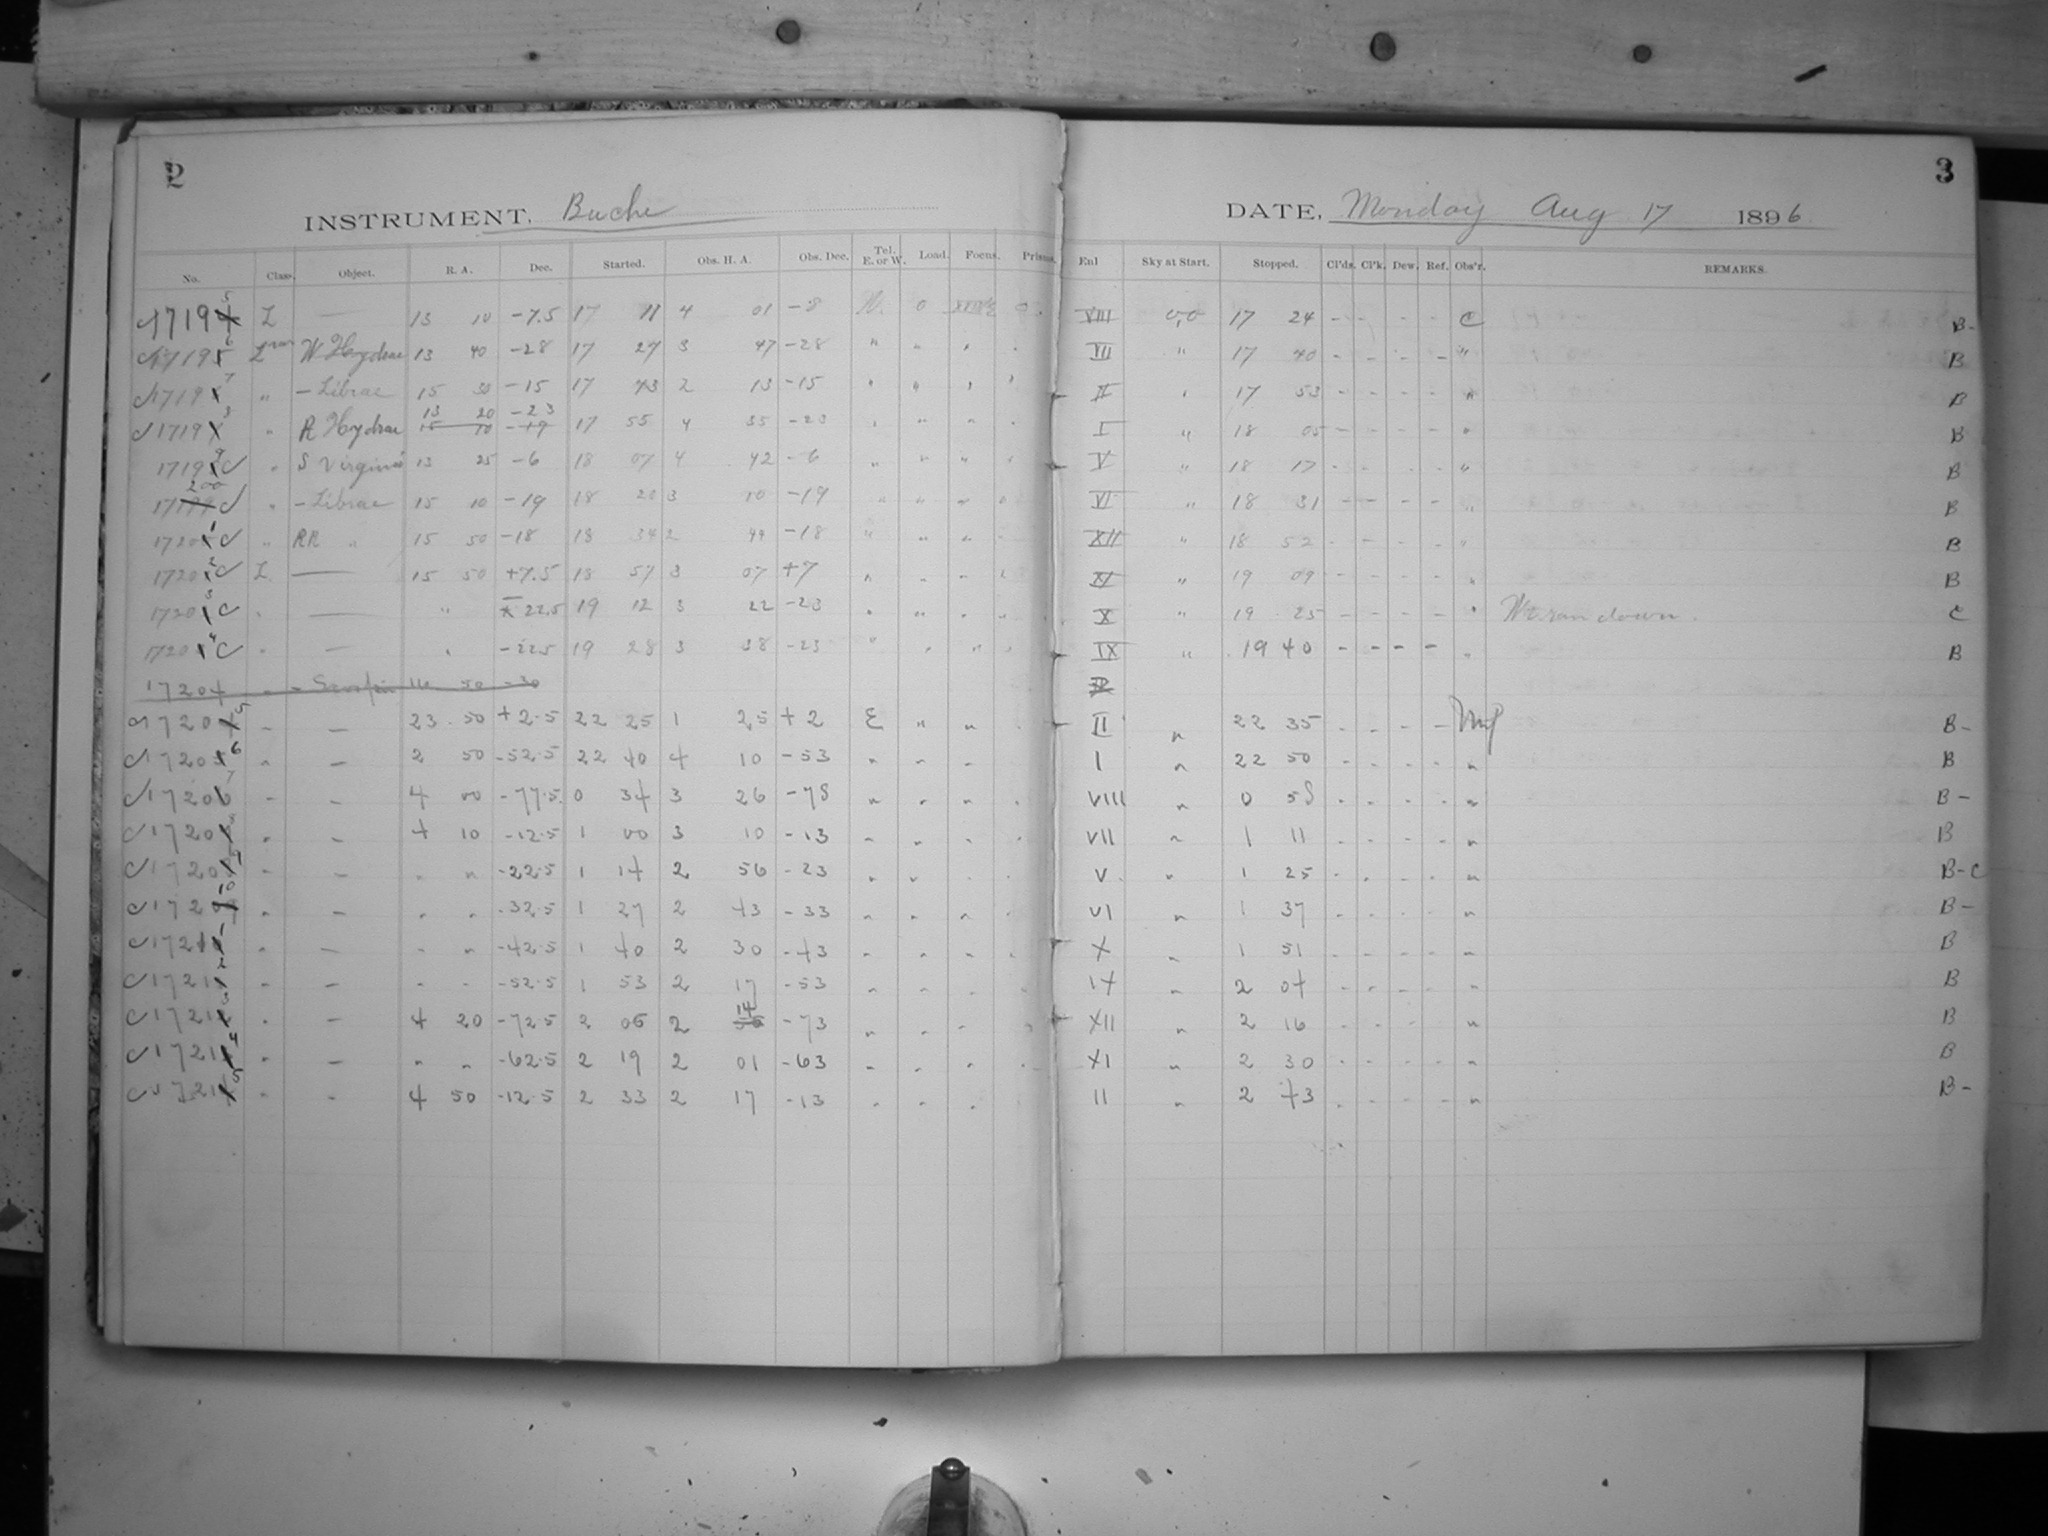 2
INSTRUMENT, Bache
No. Class. Object. R. A. Dec. Started. Obs. H. A. Obs. Dec. Tel. E. or W. Load. Focus. Prisms.
17195 L — 13 10 -7.5 17 11 4 01 -8 W. 0 0.
17196 L W Hydrae 13 40 -28 17 27 3 47 -28 " " "
17197 " - Librae 15 30 -15 17 43 2 13 -15 " " " "
17198 " R Hydrae 13 20 -23 17 55 4 35 -23 " " "
17199 " S Virginis 13 25 -6 18 07 4 42 -6 " " "
17200 " - Librae 15 10 -19 18 20 3 10 -19 " " " "
17201 " RR " 15 50 -18 18 34 2 44 -18 " " " "
17202 L — 15 50 +7.5 18 57 3 07 +7 " " " "
17203 " — " -22.5 19 12 3 22 -23 " " " "
17204 " — " -22.5 19 28 3 38 -23 " " " "
17204 " - Scorpii 16 50 -30
17205 " — 23 50 +2.5 22 25 1 25 +2 E " "
17206 " — 2 50 -52.5 22 40 4 10 -53 " " "
17207 " — 4 00 -77.5 0 34 3 26 -78 " " " "
17208 " — 4 10 -12.5 1 00 3 10 -13 " " " "
17209 " — " " -22.5 1 14 2 56 -23 " " " "
17210 " — " " -32.5 1 27 2 43 -33 " " " "
17211 " — " " -42.5 1 40 2 30 -43 " " " "
17212 " — " " -52.5 1 53 2 17 -53 " " " "
17213 " — 4 20 -72.5 2 06 2 14 -73 " " " "
17214 " — " " -62.5 2 19 2 01 -63 " " " "
17215 " — 4 50 -12.5 2 33 2 17 -13 " " " "
3
DATE, Monday Aug 17 1896
Enl Sky at Start. Stopped. Cl'ds. Cl'k. Dew. Ref. Obs'r. REMARKS.
VIII 0,0 17 24 - - - - C B-
VII " 17 40 - - - - " B
II " 17 53 - - - - " B
I " 18 05 - - - - " B
V " 18 17 - - - - " B
VI " 18 31 - - - - " B
XII " 18 52 - - - - " B
XI " 19 09 - - - - " B
X " 19 25 - - - - " Wt ran down. C
IX " 19 40 - - - - " B
II " 22 35 - - - - B-
I " 22 50 - - - - " B
VIII " 0 58 - - - - " B-
VII " 1 11 - - - - " B
V " 1 25 - - - - " B-C
VI " 1 37 - - - - " B-
X " 1 51 - - - - " B
IX " 2 04 - - - - " B
XII " 2 16 - - - - " B
XI " 2 30 - - - - " B
II " 2 43 - - - - " B-